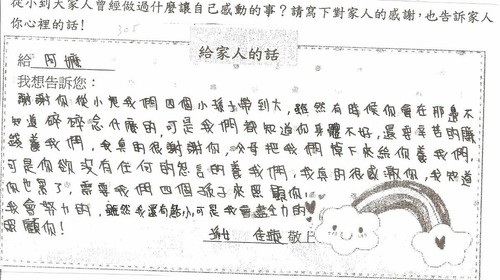 從小到大家人曾經做過什麼讓自己感動的事？請寫下對家人的感謝，也告訴家人
你心裡的話！
305
給家人的話
給 阿嬤
我想告訴您：
謝謝你從小把我們四個小孩子帶到大，雖然有時候你會在那邊不
知道碎碎念什麼的，可是我們都知道你身體不好，還要辛苦的賺
錢養我們，我真的很謝謝你，父母把我們博下來給你養我們，
可是你欲沒有任何的怨言的養我們，我真的很感激你，我知道
你也累了，需要我們四個孫子來照顧你，
我會努力的，雖然我還有點小，可是我會盡全力的
照顧你！
孫女 佳 敬上